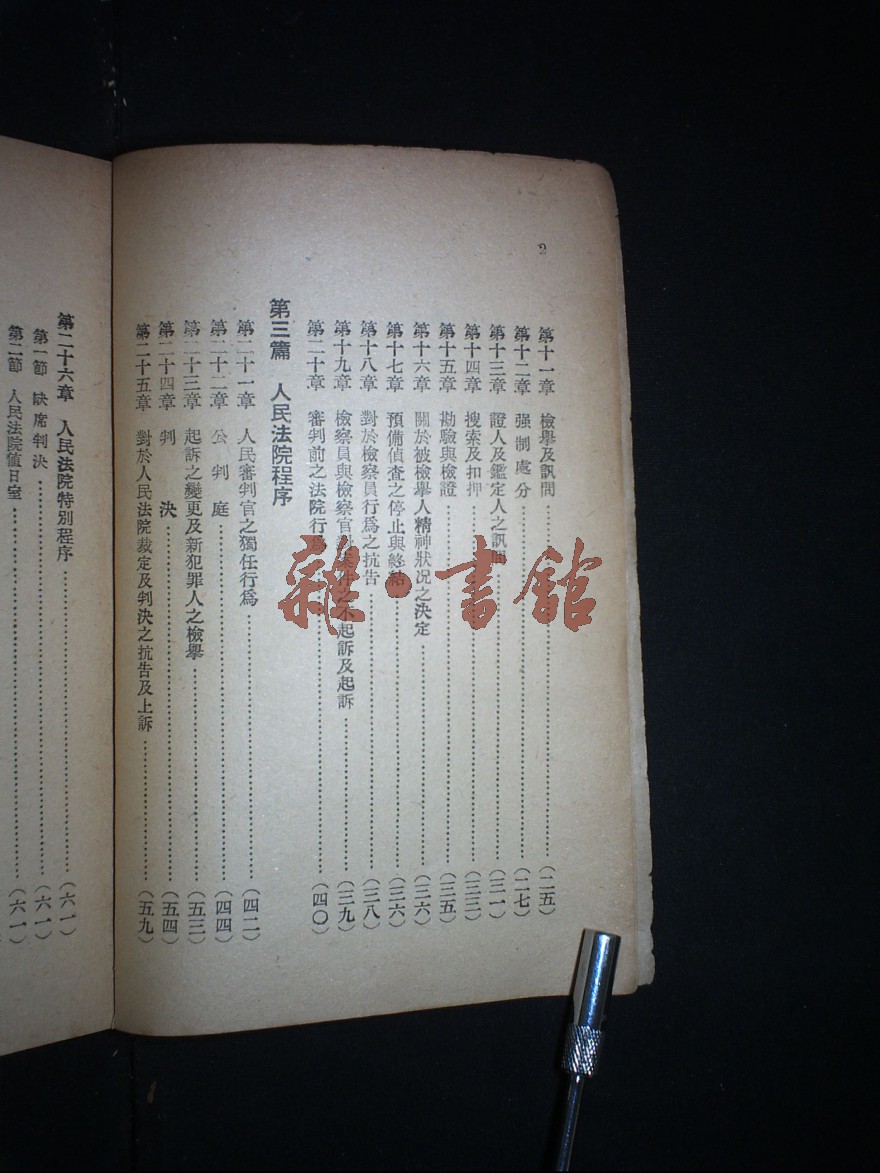 2
第十一章 檢舉及訊問……(二五)
第十二章 强制處分……(二七)
第十三章 證人及鑑定人之訊問……(三一)
第十四章 搜索及扣押……(三三)
第十五章 勘驗與檢證……(三五)
第十六章 關於被檢舉人精神狀况之決定……(三六)
第十七章 預備偵查之停止與終結……(三六)
第十八章 對於檢察員行爲之抗告……(三八)
第十九章 檢察員與檢察官對案件之不起訴及起訴……(三九)
第二十章 審判前之法院行爲……(四〇)
第三篇 人民法院程序
第二十一章 人民審判官之獨任行爲……(四二)
第二十二章 公判庭……(四四)
第二十三章 起訴之變更及新犯罪人之檢舉……(五三)
第二十四章 判決……(五四)
第二十五章 對於人民法院裁定及判決之抗告及上訴……(五九)
第二十六章 人民法院特別程序……(六一)
第一節 缺席判決……(六一)
第二節 人民法院值日室……(六一)
雜·書館